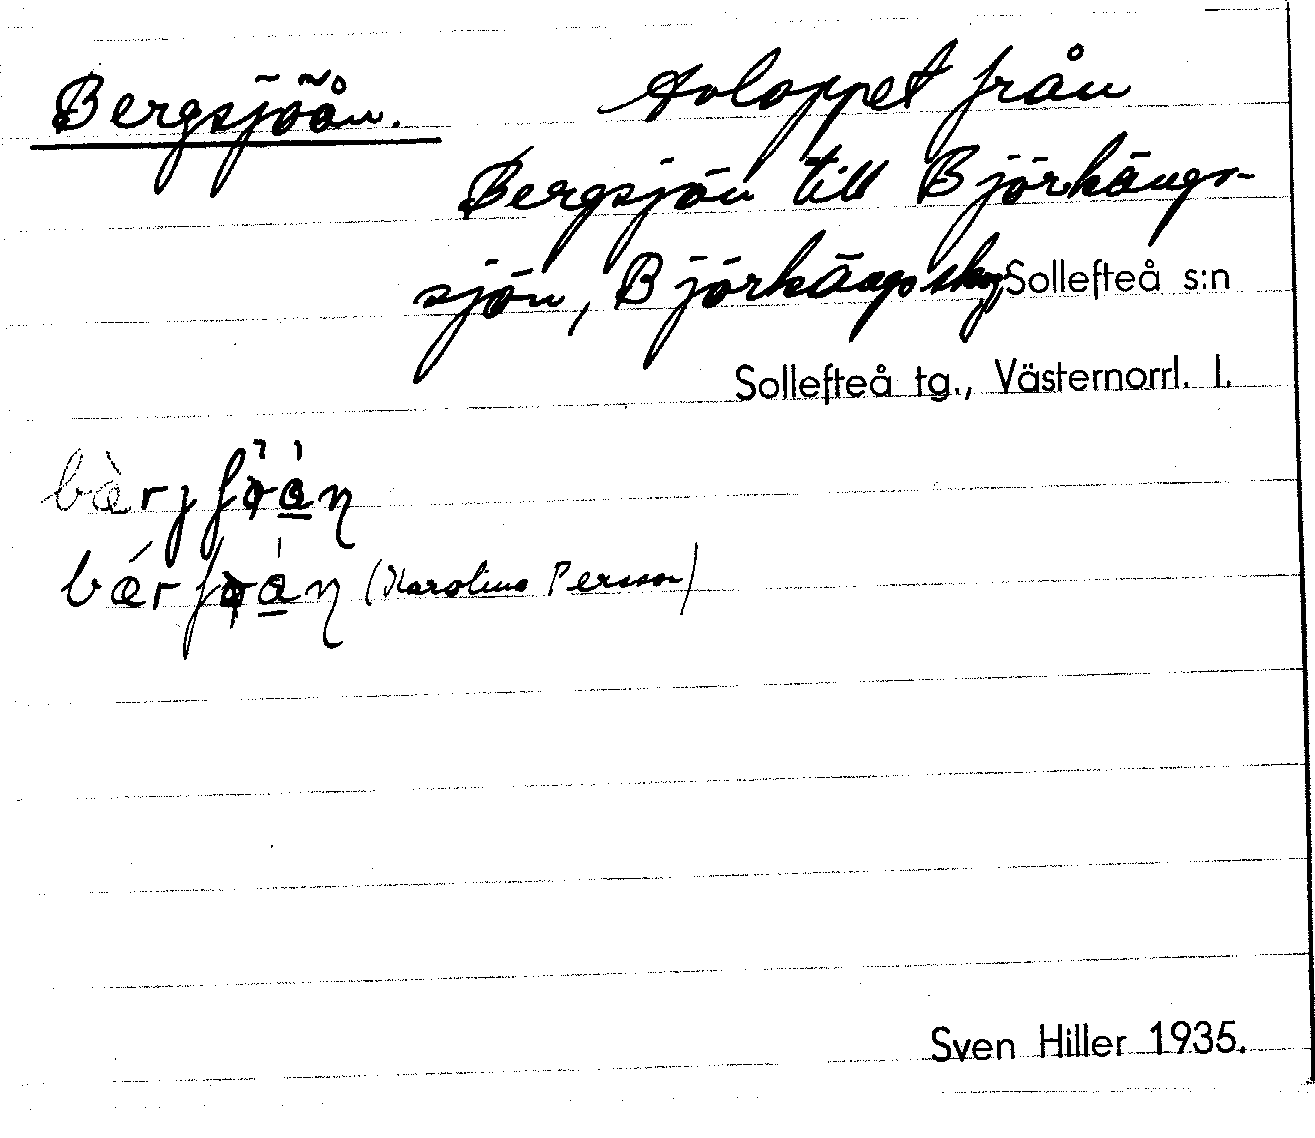 Bergsjöån. Avloppet från
Bergsjön till Björkängs-
sjön, Björkängs skog Sollefteå s:n
Sollefteå tg., Västernorrl. l.
(Karolina Persson)
Sven Hiller 1935.